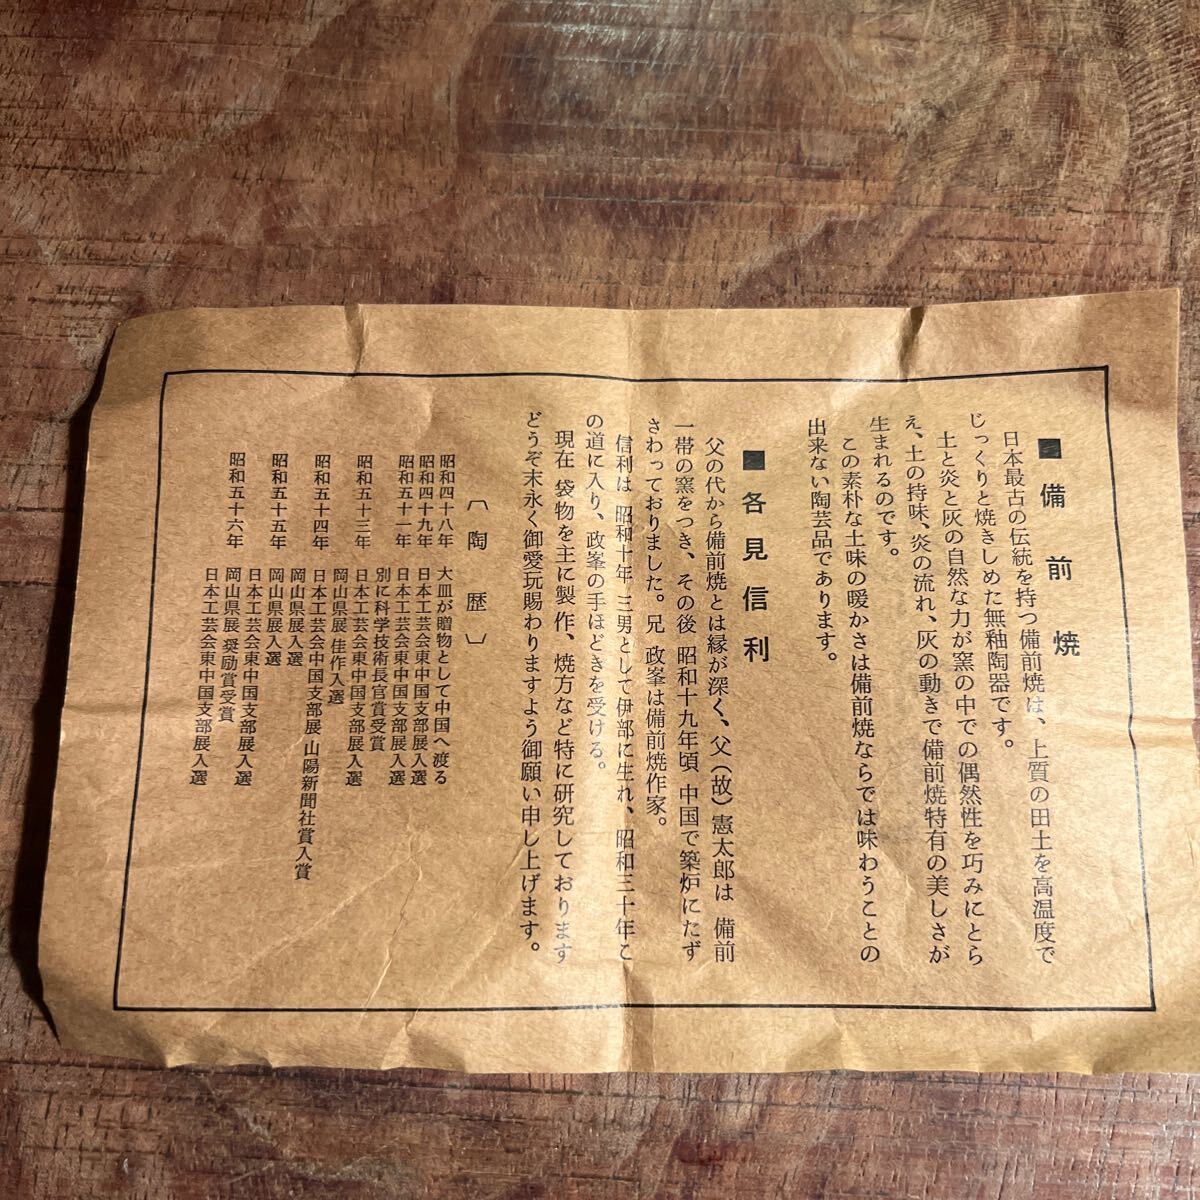 ■備前焼
日本最古の伝統を持つ備前焼は、上質の田土を高温度で
じっくりと焼きしめた無釉陶器です。
土と炎と灰の自然な力が窯の中での偶然性を巧みにとら
え、土の持味、炎の流れ、灰の動きで備前焼特有の美しさが
生まれるのです。
この素朴な土味の暖かさは備前焼ならでは味わうことの
出来ない陶芸品であります。
■各見信利
父の代から備前焼とは縁が深く、父(故)憲太郎は 備前
一帯の窯をつき、その後 昭和十九年頃 中国で築炉にたず
さわっておりました。兄 政峯は備前焼作家。
信利は 昭和十年 三男として伊部に生れ、昭和三十年こ
の道に入り、政峯の手ほどきを受ける。
現在 袋物を主に製作、焼方など特に研究しております
どうぞ末永く御愛玩賜わりますよう御願い申し上げます。
〔陶歴〕
昭和四十八年 大皿が贈物として中国へ渡る
昭和四十九年 日本工芸会東中国支部展入選
昭和五十一年 日本工芸会東中国支部展入選
別に科学技術長官賞受賞
昭和五十三年 日本工芸会東中国支部展入選
岡山県展 佳作入選
昭和五十四年 日本工芸会中国支部展 山陽新聞社賞入賞
岡山県展入選
昭和五十五年 岡山県展入選
日本工芸会東中国支部展入選
昭和五十六年 岡山県展 奨励賞受賞
日本工芸会東中国支部展入選